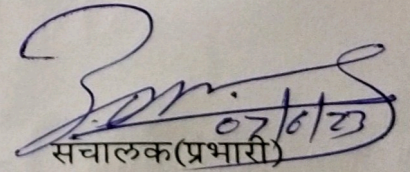 07/6/23
संचालक(प्रभारी)